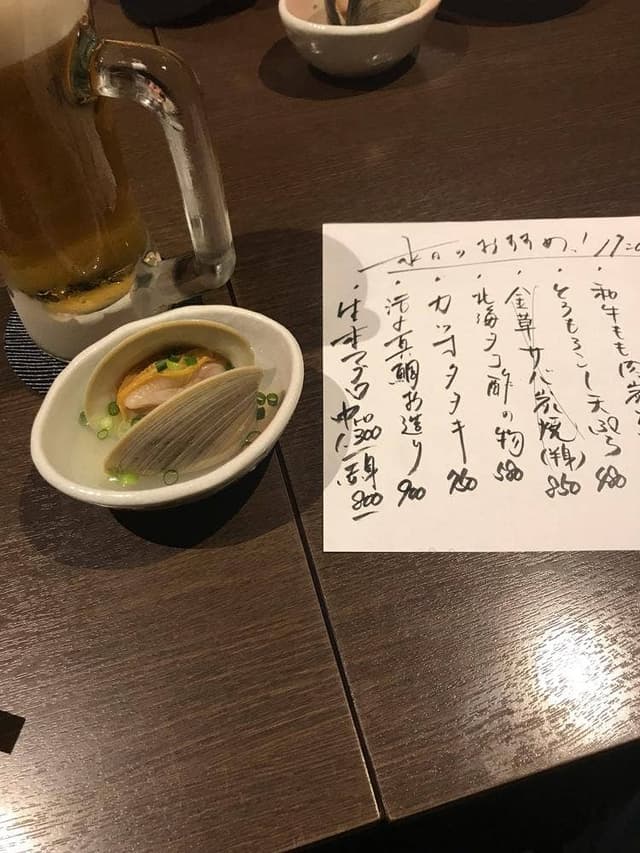 本日のおすすめ!
・和牛もも肉炭
・とうもろこし天ぷら 480
・金華サバ炭焼(半身) 850
・北海タコ酢の物 580
・カツオタタキ 750
・活〆真鯛お造り 900
・生本マグロ 中トロ1300 赤身800